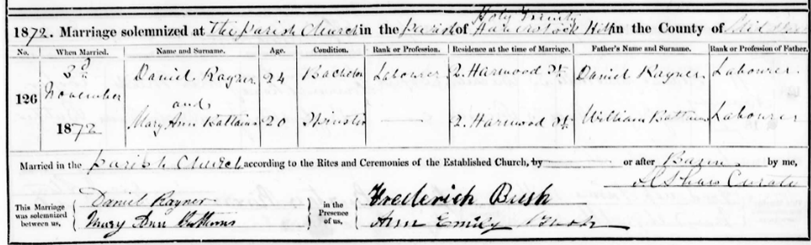 Holy Trinity
1872. Marriage solemnized at The Parish Church in the Parish of Haverstock Hill in the County of
No. When Married. Name and Surname. Age. Condition. Rank or Profession. Residence at the time of Marriage. Father's Name and Surname. Rank or Profession of Father.
3rd November Daniel Rayner 24 Bachelor Labourer 2. Harwood St. Daniel Rayner Labourer
126 and
1872 Mary Ann 20 Spinster — 2. Harwood St. William Labourer
Married in the Parish Church according to the Rites and Ceremonies of the Established Church, by or after Banns by me,
Curate
This Marriage was solemnized between us, Daniel Rayner in the Presence of us, Frederick Bush
Mary Ann Ann Emily Bush